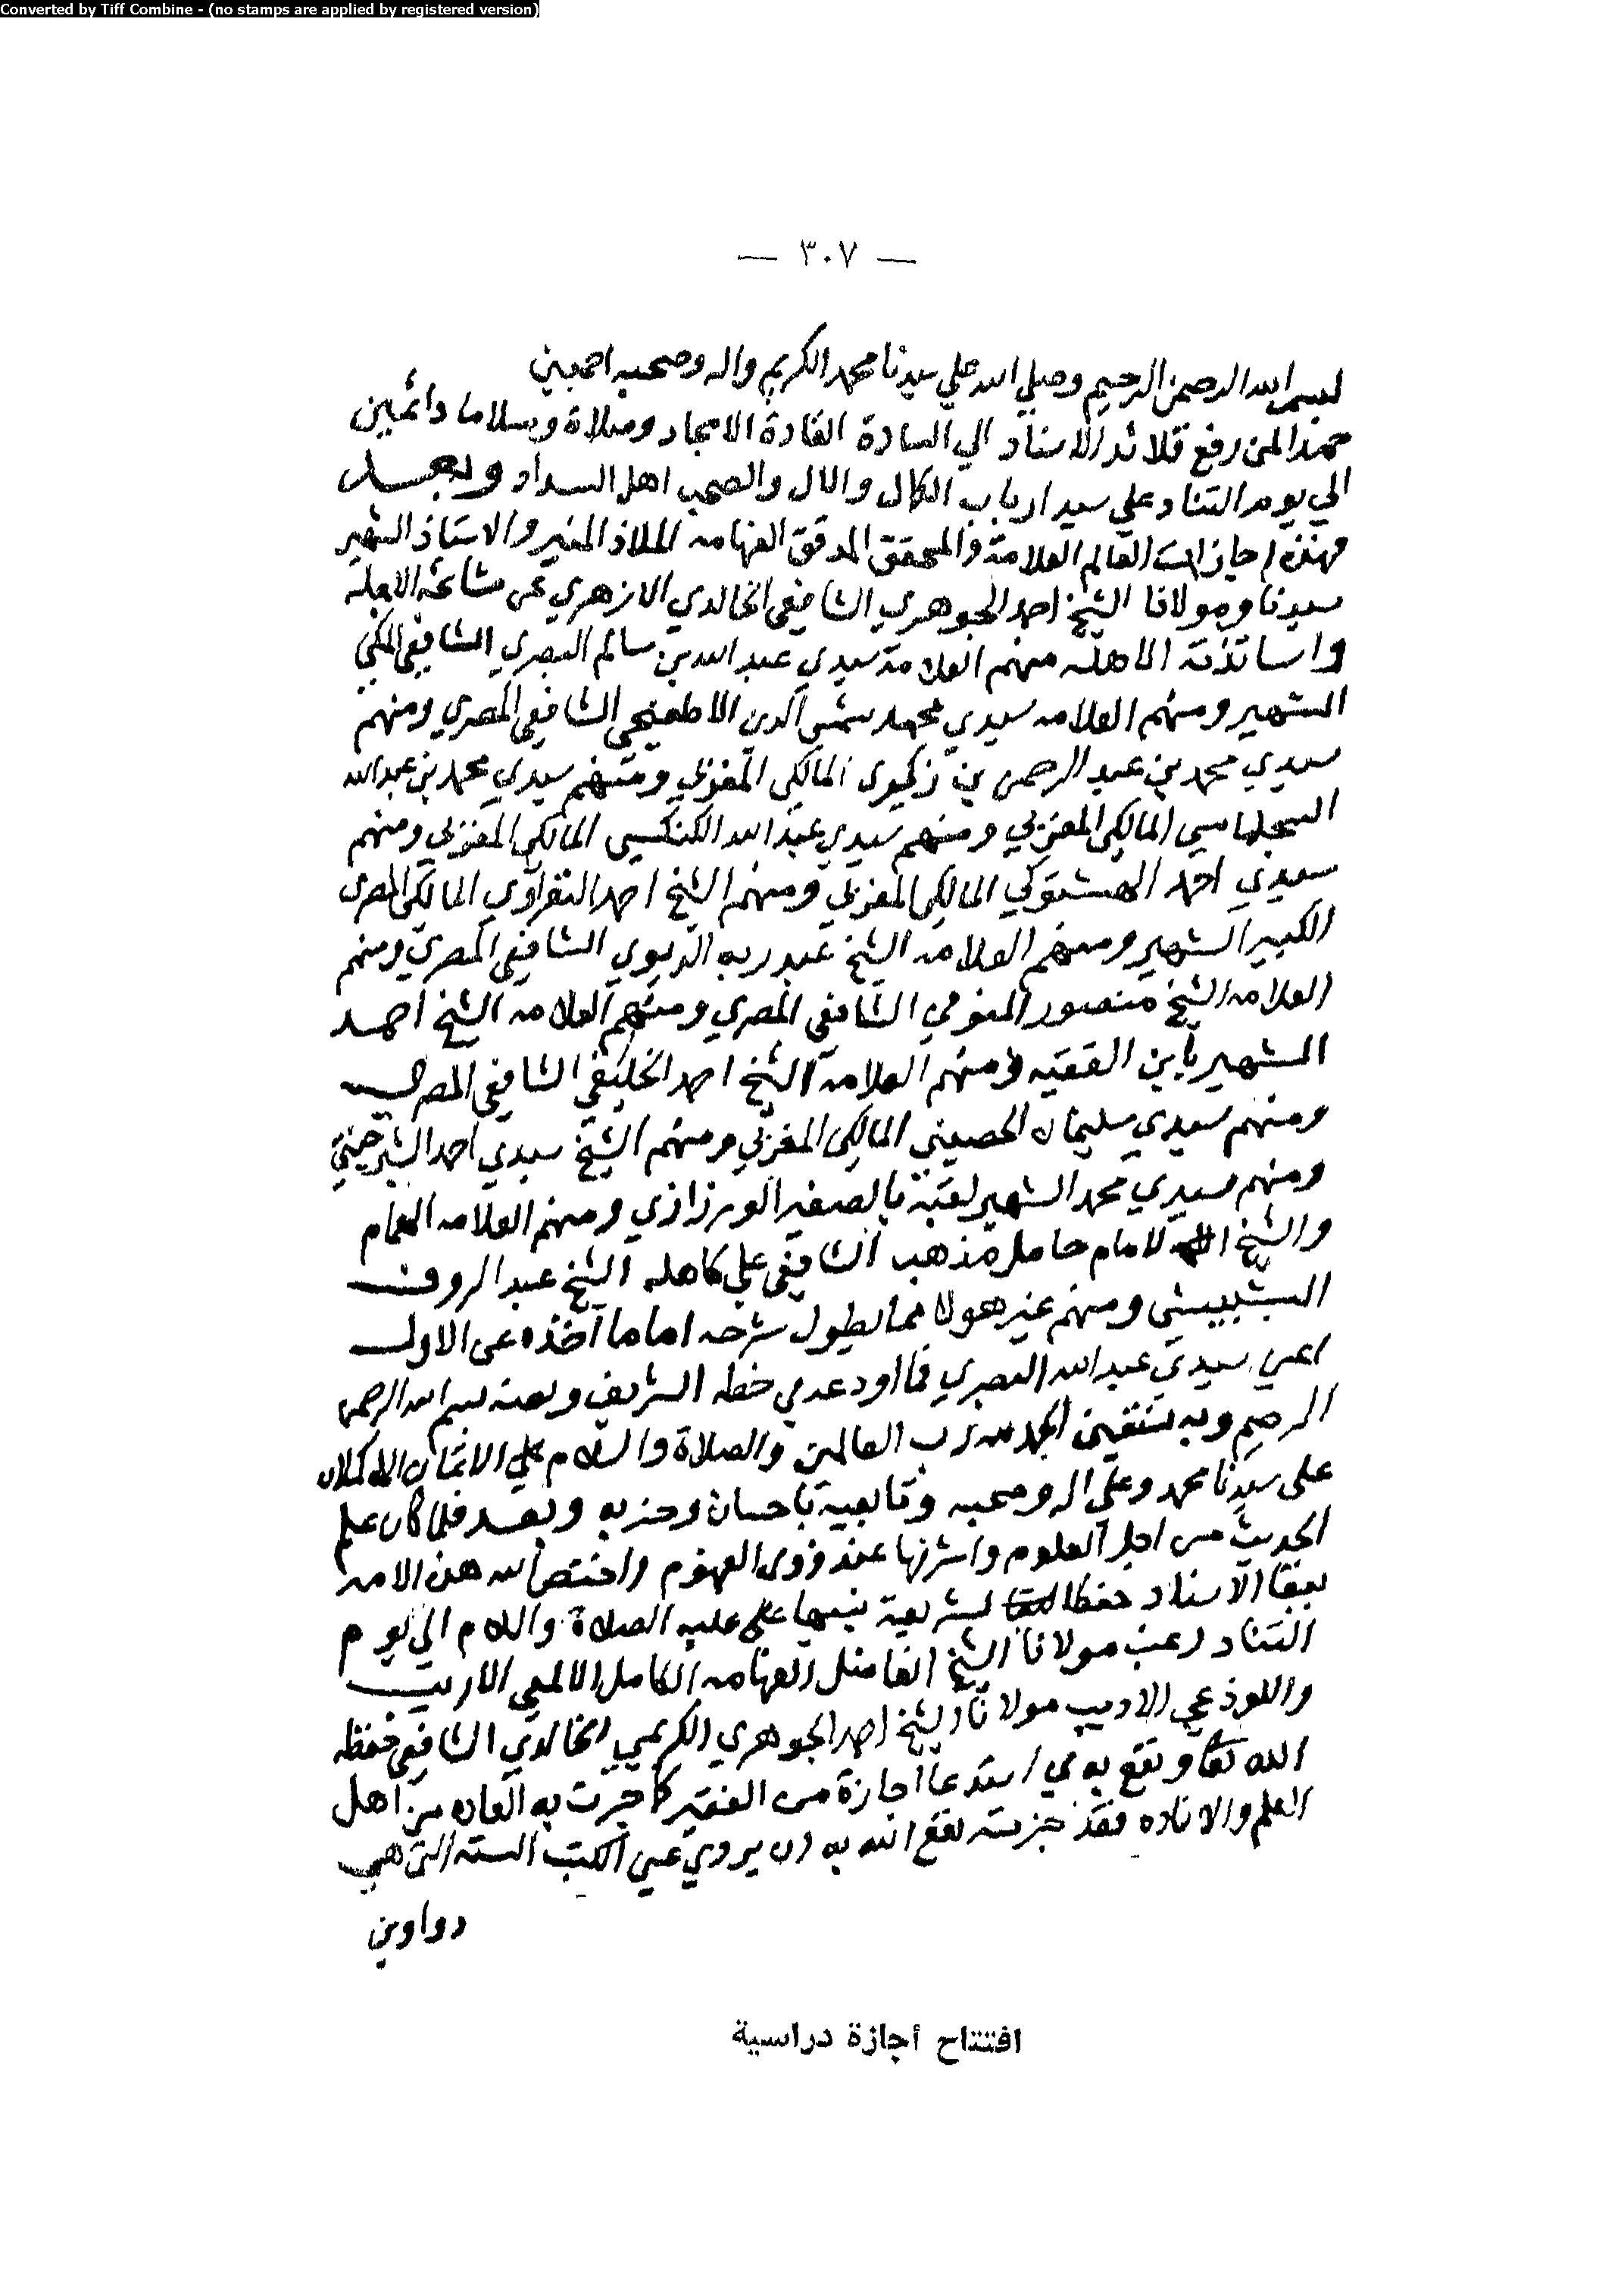 Converted by Tiff Combine - (no stamps are applied by registered version)
— ٣٠٧ —
بسم الله الرحمن الرحيم وصلي الله علي سيدنا محمد الكريم واله وصحبه اجمعين
حمدا لمن رفع قلائد الاسناد الي السادة القادة الامجاد وصلاة وسلاما دائمين
الي يوم التناد علي سيد ارباب الكمال والال والصحب اهل السداد وبعد
فهذه اجازات العالم العلامة والمحقق المدقق الفهامه الملاذ المنير والاستاذ الشهير
سيدنا ومولانا الشيخ احمد الجوهري الشافعي الخالدي الازهري عن مشائخه الاجله
واساتذته الاهله منهم العلامة سيدي عبد الله بن سالم البصري الشافعي المكي
الشهير ومنهم العلامه سيدي محمد شمس الدين الاطفيحي الشافعي المصري ومنهم
سيدي محمد بن عبد الرحمن بن زكري المالكي المغربي ومنهم سيدي محمد بن عبد الله
السجلماسي المالكي المغربي ومنهم سيدي عبد الله الكنكسي المالكي المغربي ومنهم
سيدي احمد الهشتوكي المالكي المغربي ومنهم الشيخ احمد النفراوي المالكي المصري
الكبير الشهير ومنهم العلامه الشيخ عبد ربه الديوي الشافعي المصري ومنهم
العلامه الشيخ منصور المنوفي الشافعي المصري ومنهم العلامه الشيخ احمد
الشهير بابن الفقيه ومنهم العلامه الشيخ احمد الخليفي الشافعي المصري
ومنهم سيدي سليمان الحصيني المالكي المغربي ومنهم الشيخ سيدي احمد الشبرخيتي
ومنهم سيدي محمد الشهير لقبه بالصغير الورزازي ومنهم العلامه الهمام
والشيخ الامام حامل مذهب الشافعي علي كاهله الشيخ عبد الروف
البشبيشي ومنهم غير هولا مما يطول شرحه اما ما اخذه عن الاول
اعني سيدي عبد الله البصري فما اودعه في خطه الشريف ونصه بسم الله الرحمن
الرحيم وبه نستعين الحمد لله رب العالمين والصلاة والسلام علي الاتمان الاكملان
على سيدنا محمد وعلي اله وصحبه وتابعيه باحسان وحزبه وبعد فلما كان علم
الحديث من اجل العلوم واشرفها عند ذوي الفهوم واختص الله هذه الامه
ببقا الاسناد حفظا لشريعة نبيها علي عليه الصلاة والسلام الي يوم
التناد رغب مولانا الشيخ الفاضل الفهامه الكامل الالمعي الاريب
واللوذعي الاديب مولانا الشيخ احمد الجوهري الكريمي الخالدي الشافعي حفظه
الله تعا ونفع به في استدعا اجازة من الفقير كما جرت به العاده من اهل
العلم والافاده فقد اجزته نفع الله به ان يروي عني الكتب الستة التي هي
دواوين
افتتاح أجازة دراسية